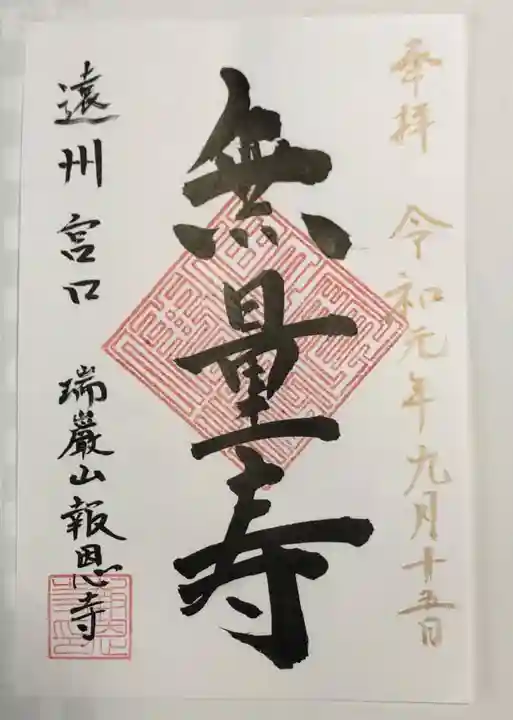 奉拝 令和元年九月十五日
無量寿
遠州 宮口 瑞巖山報恩寺